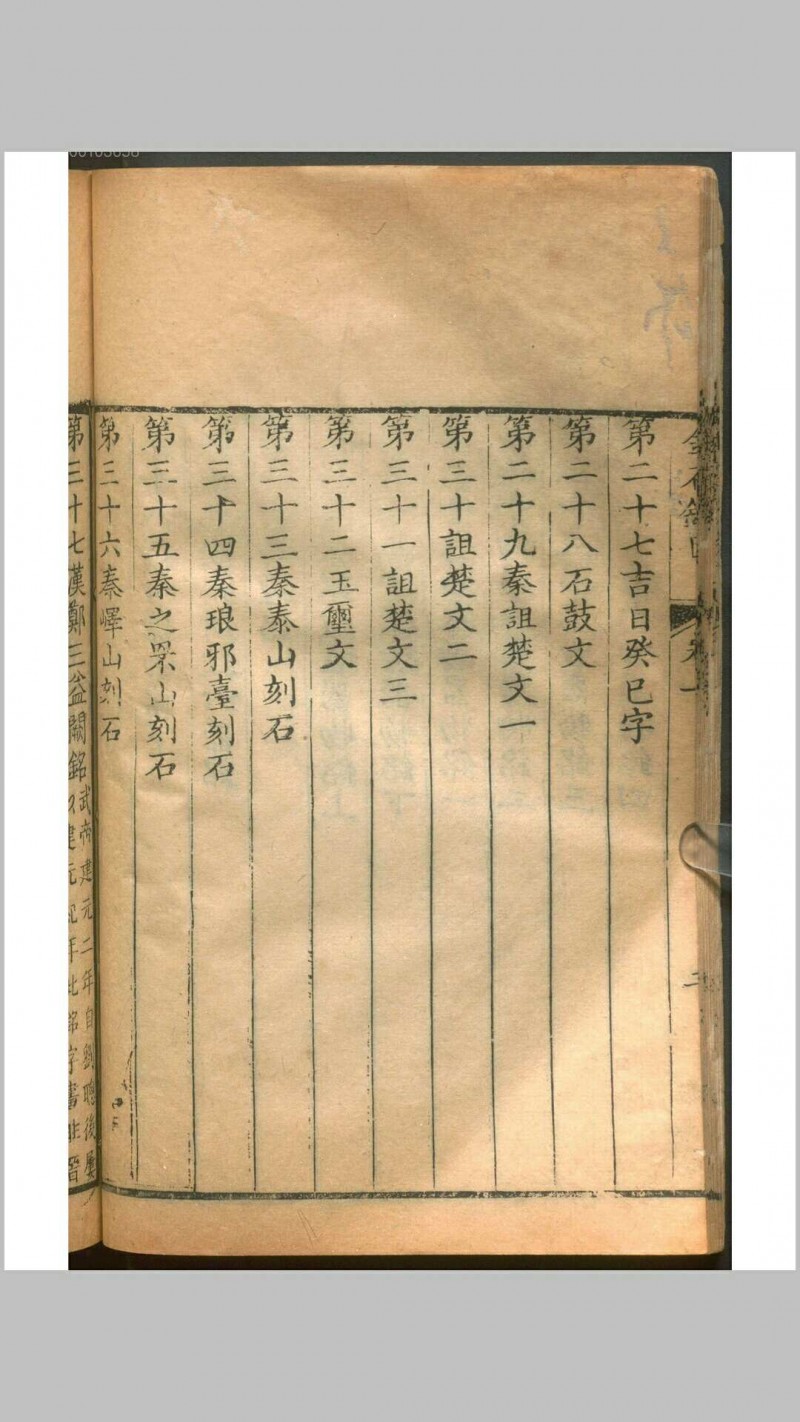 第二十七吉日癸巳字
第二十八石鼓文
第二十九秦詛楚文一
第三十詛楚文二
第三十一詛楚文三
第三十二玉璽文
第三十三秦泰山刻石
第三十四秦琅邪臺刻石
第三十五秦之罘山刻石
第三十六秦嶧山刻石
第三十七漢鄭三益闕銘
武帝建元二年自劉聰後屢
建元紀年此銘字書非晉